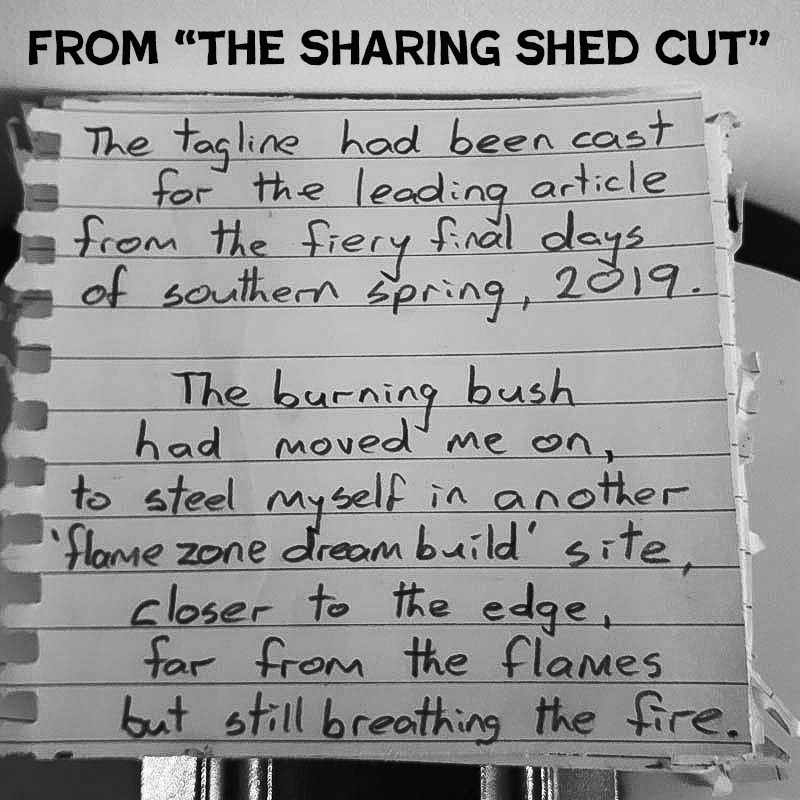 FROM “THE SHARING SHED CUT”
The tagline had been cast
for the leading article
from the fiery final days
of southern spring, 2019.
The burning bush
had moved me on,
to steel myself in another
'flame zone dream build' site,
closer to the edge,
far from the flames
but still breathing the fire.